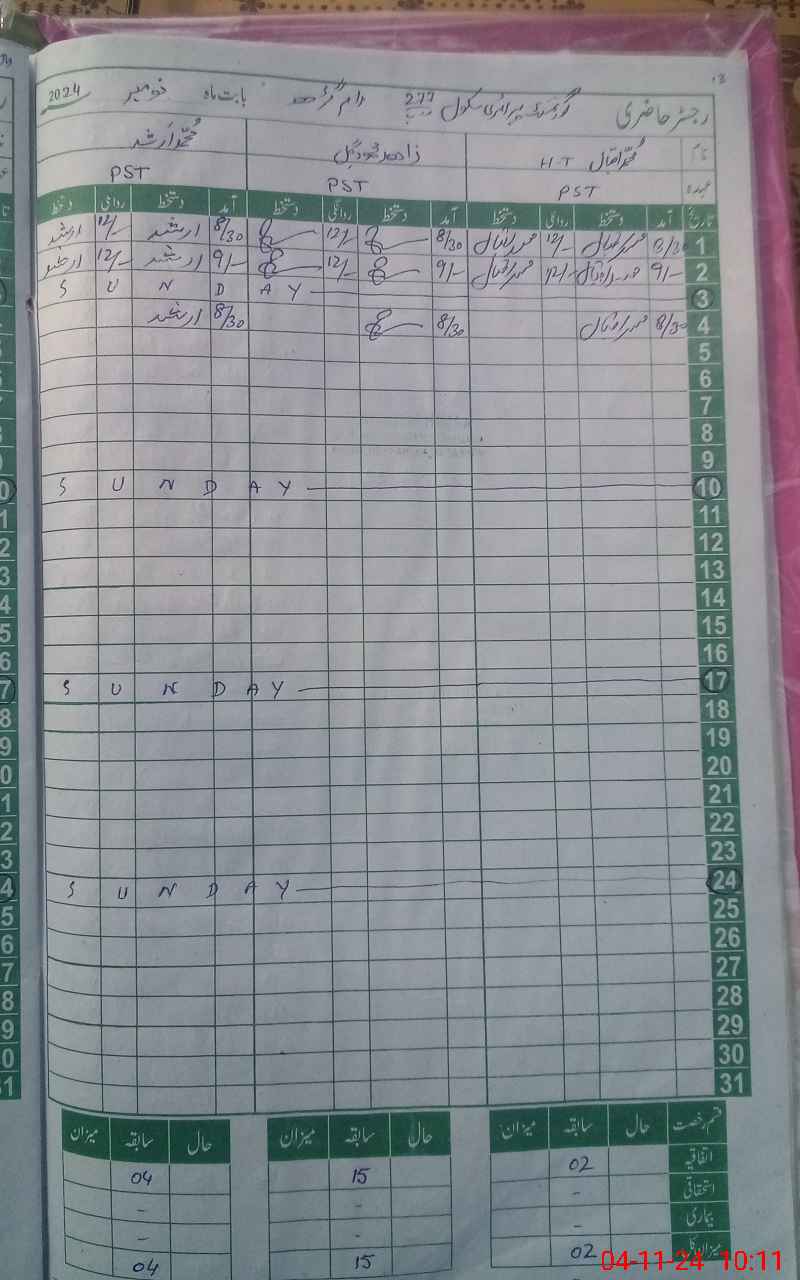 رجسٹر حاضری گورنمنٹ پرائمری سکول 277 رام گڑھ بابت ماہ نومبر 2024
نام محمد اقبال H-T محمد ارشد
عہدہ PST PST PST
تاریخ آمد دستخط روانگی دستخط آمد دستخط روانگی دستخط آمد دستخط روانگی دستخط
1 8/30 محمد اقبال 12/- محمد اقبال 8/30 12/- 8/30 ارشد 12/- ارشد
2 9/- محمد اقبال 12/- محمد اقبال 9/- 12/- 9/- ارشد 12/- ارشد
3 S U N D A Y
4 8/30 محمد اقبال 8/30 8/30 ارشد
5
6
7
8
9
10 S U N D A Y
11
12
13
14
15
16
17 S U N D A Y
18
19
20
21
22
23
24 S U N D A Y
25
26
27
28
29
30
31
قسم رخصت حال سابقہ میزان حال سابقہ میزان حال سابقہ میزان
اتفاقیہ 02 15 04
استحقاقی - - -
بیماری - - -
میزان کل 02 15 04
04-11-24 10:11